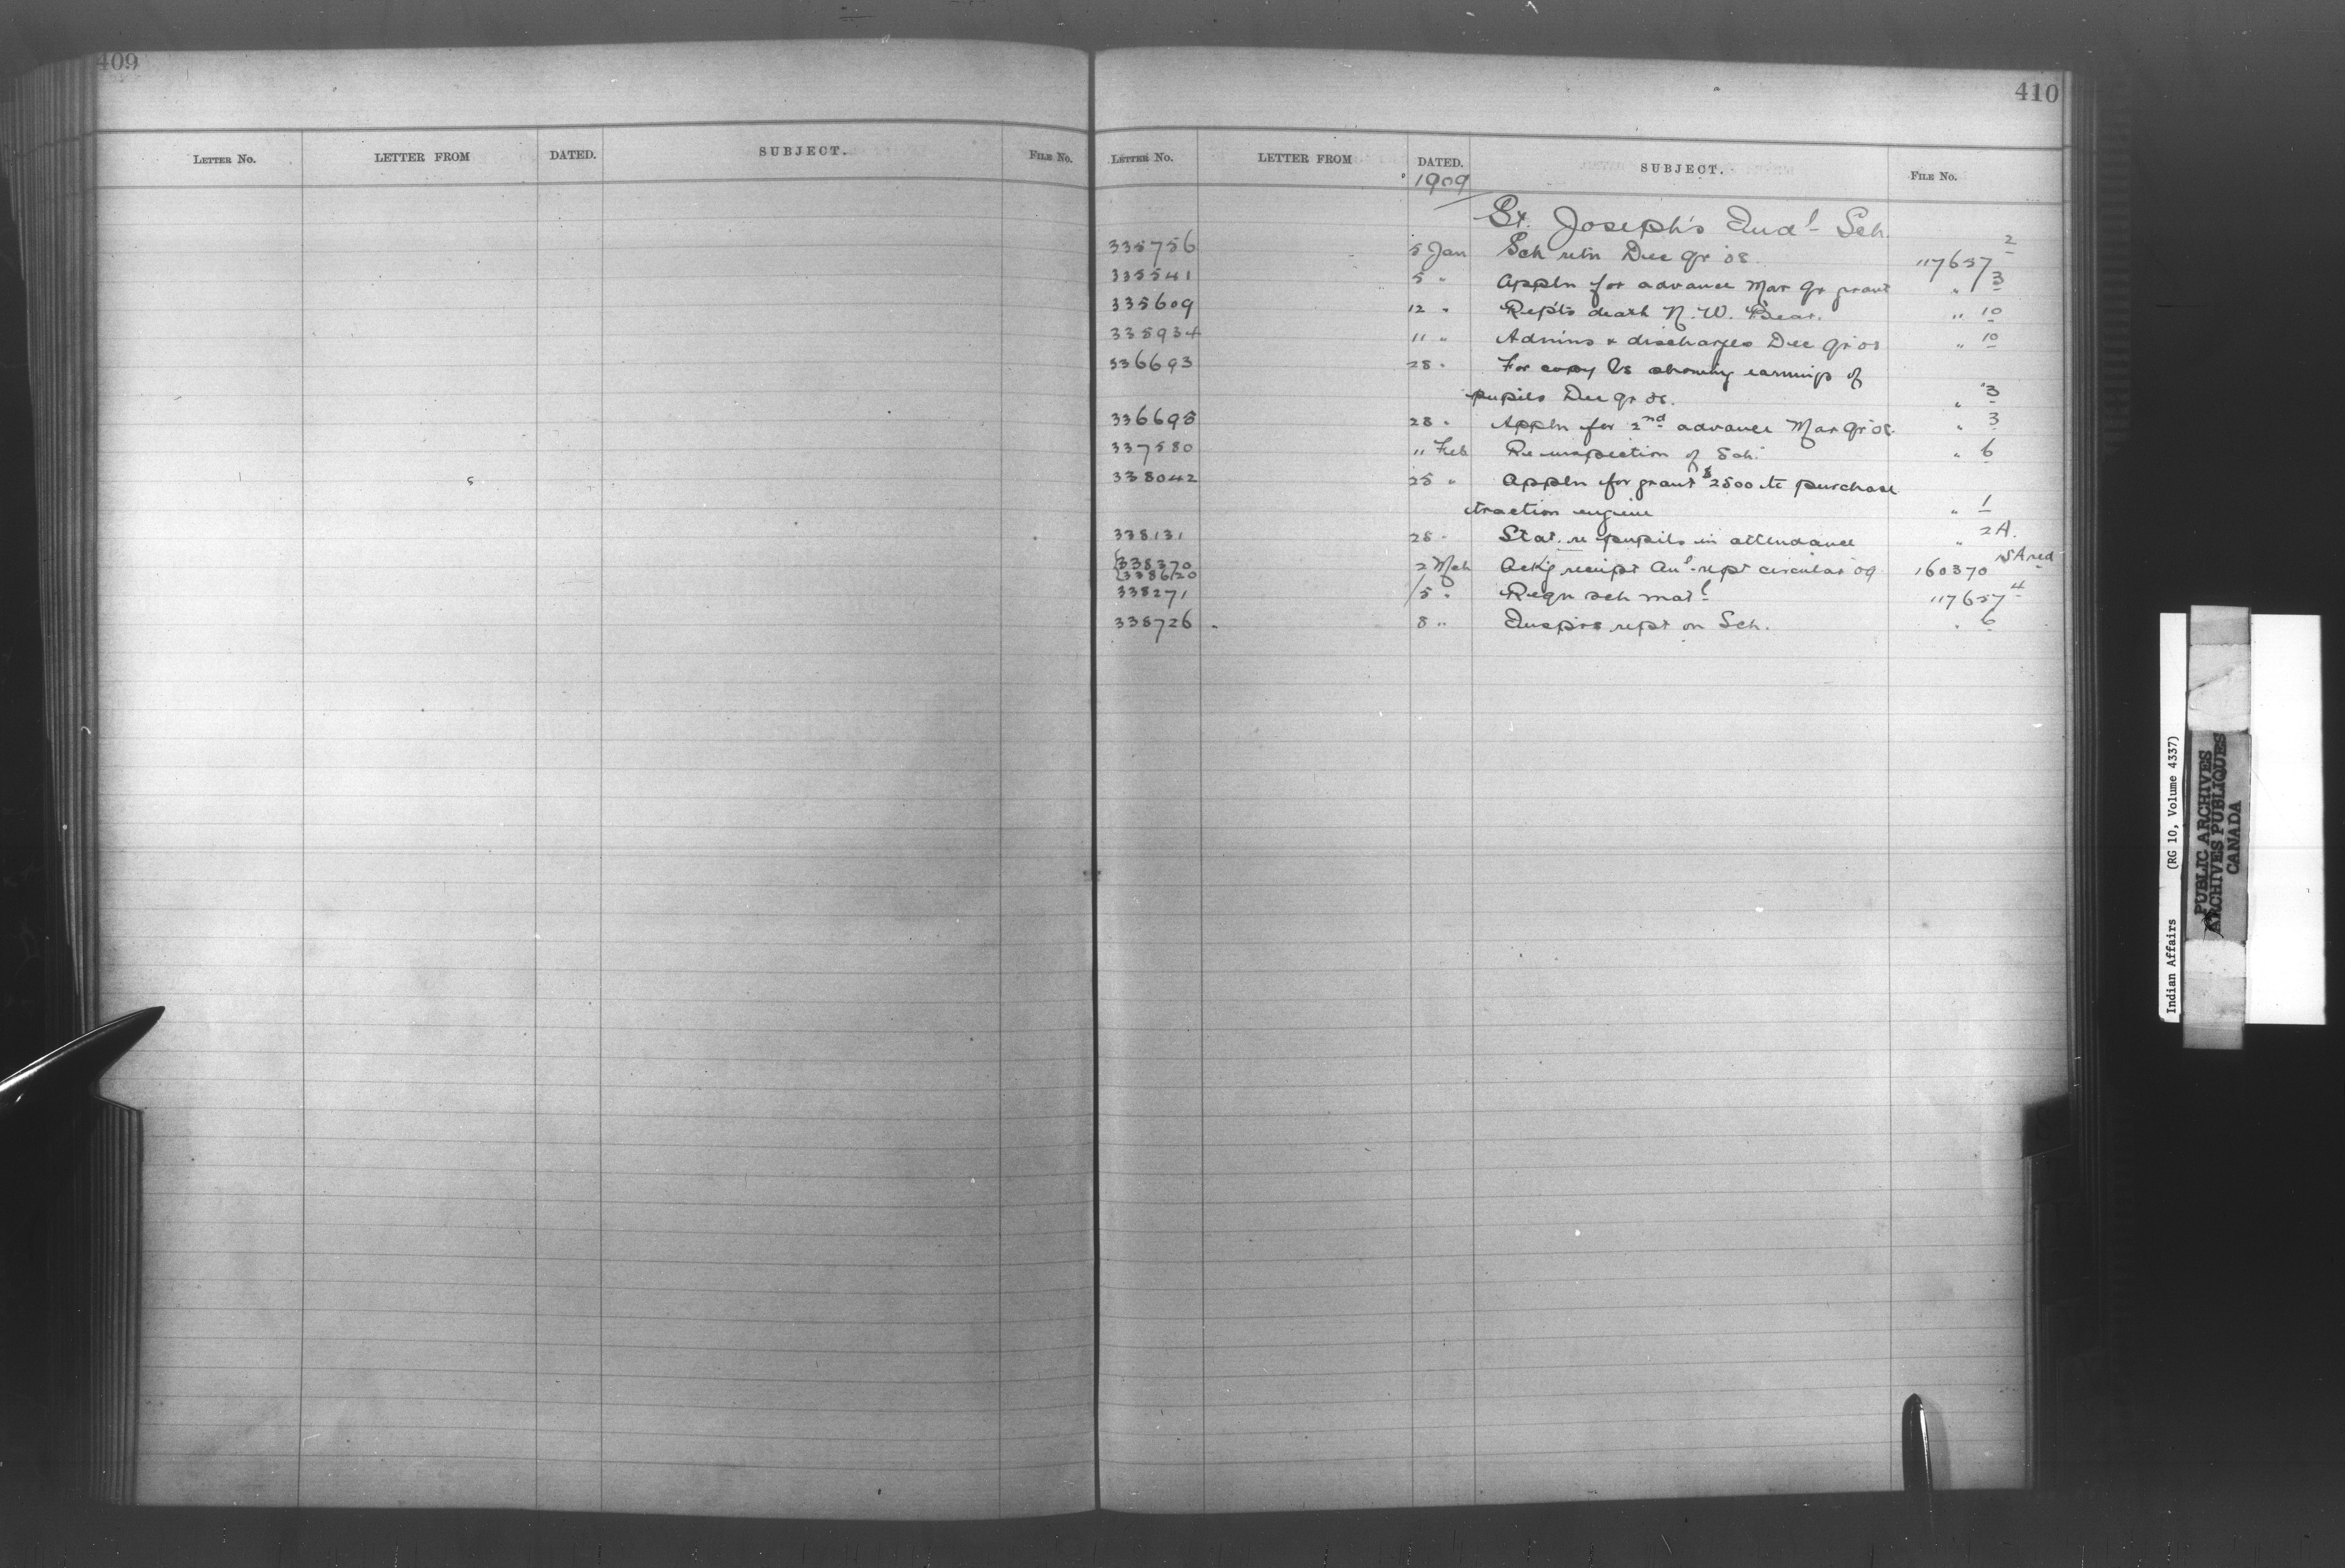 409
LETTER NO. LETTER FROM DATED. SUBJECT. FILE NO.
410
LETTER NO. LETTER FROM DATED. SUBJECT. FILE NO.
1909
St. Joseph's Indl Sch.
335756 5 Jan Sch retn Dec qr 08 117657 2
335541 5 " Appln for advance Mar qr grant " 3
335609 12 " Repts death N. W. Bear. " 10
335934 11 " Admins & discharges Dec qr 08 " 10
336693 28 " For copy showing earnings of
pupils Dec qr 08. " 3
336695 28 " Appln for 2nd advance Mar qr 08. " 3
337580 11 Feb Re inspection of Sch. " 6
338042 25 " Appln for grant $2500 to purchase
traction engine " 1
338131 28 " Stat. re pupils in attendance " 2A.
338370 2 Mch Ackg receipt Anl rept circular 09 160370
338620
338271 5 " Reqn sch matl 117657 4
338726 8 " Insprs rept on Sch. " 6
Indian Affairs (RG 10, Volume 4337)
PUBLIC ARCHIVES
ARCHIVES PUBLIQUES
CANADA